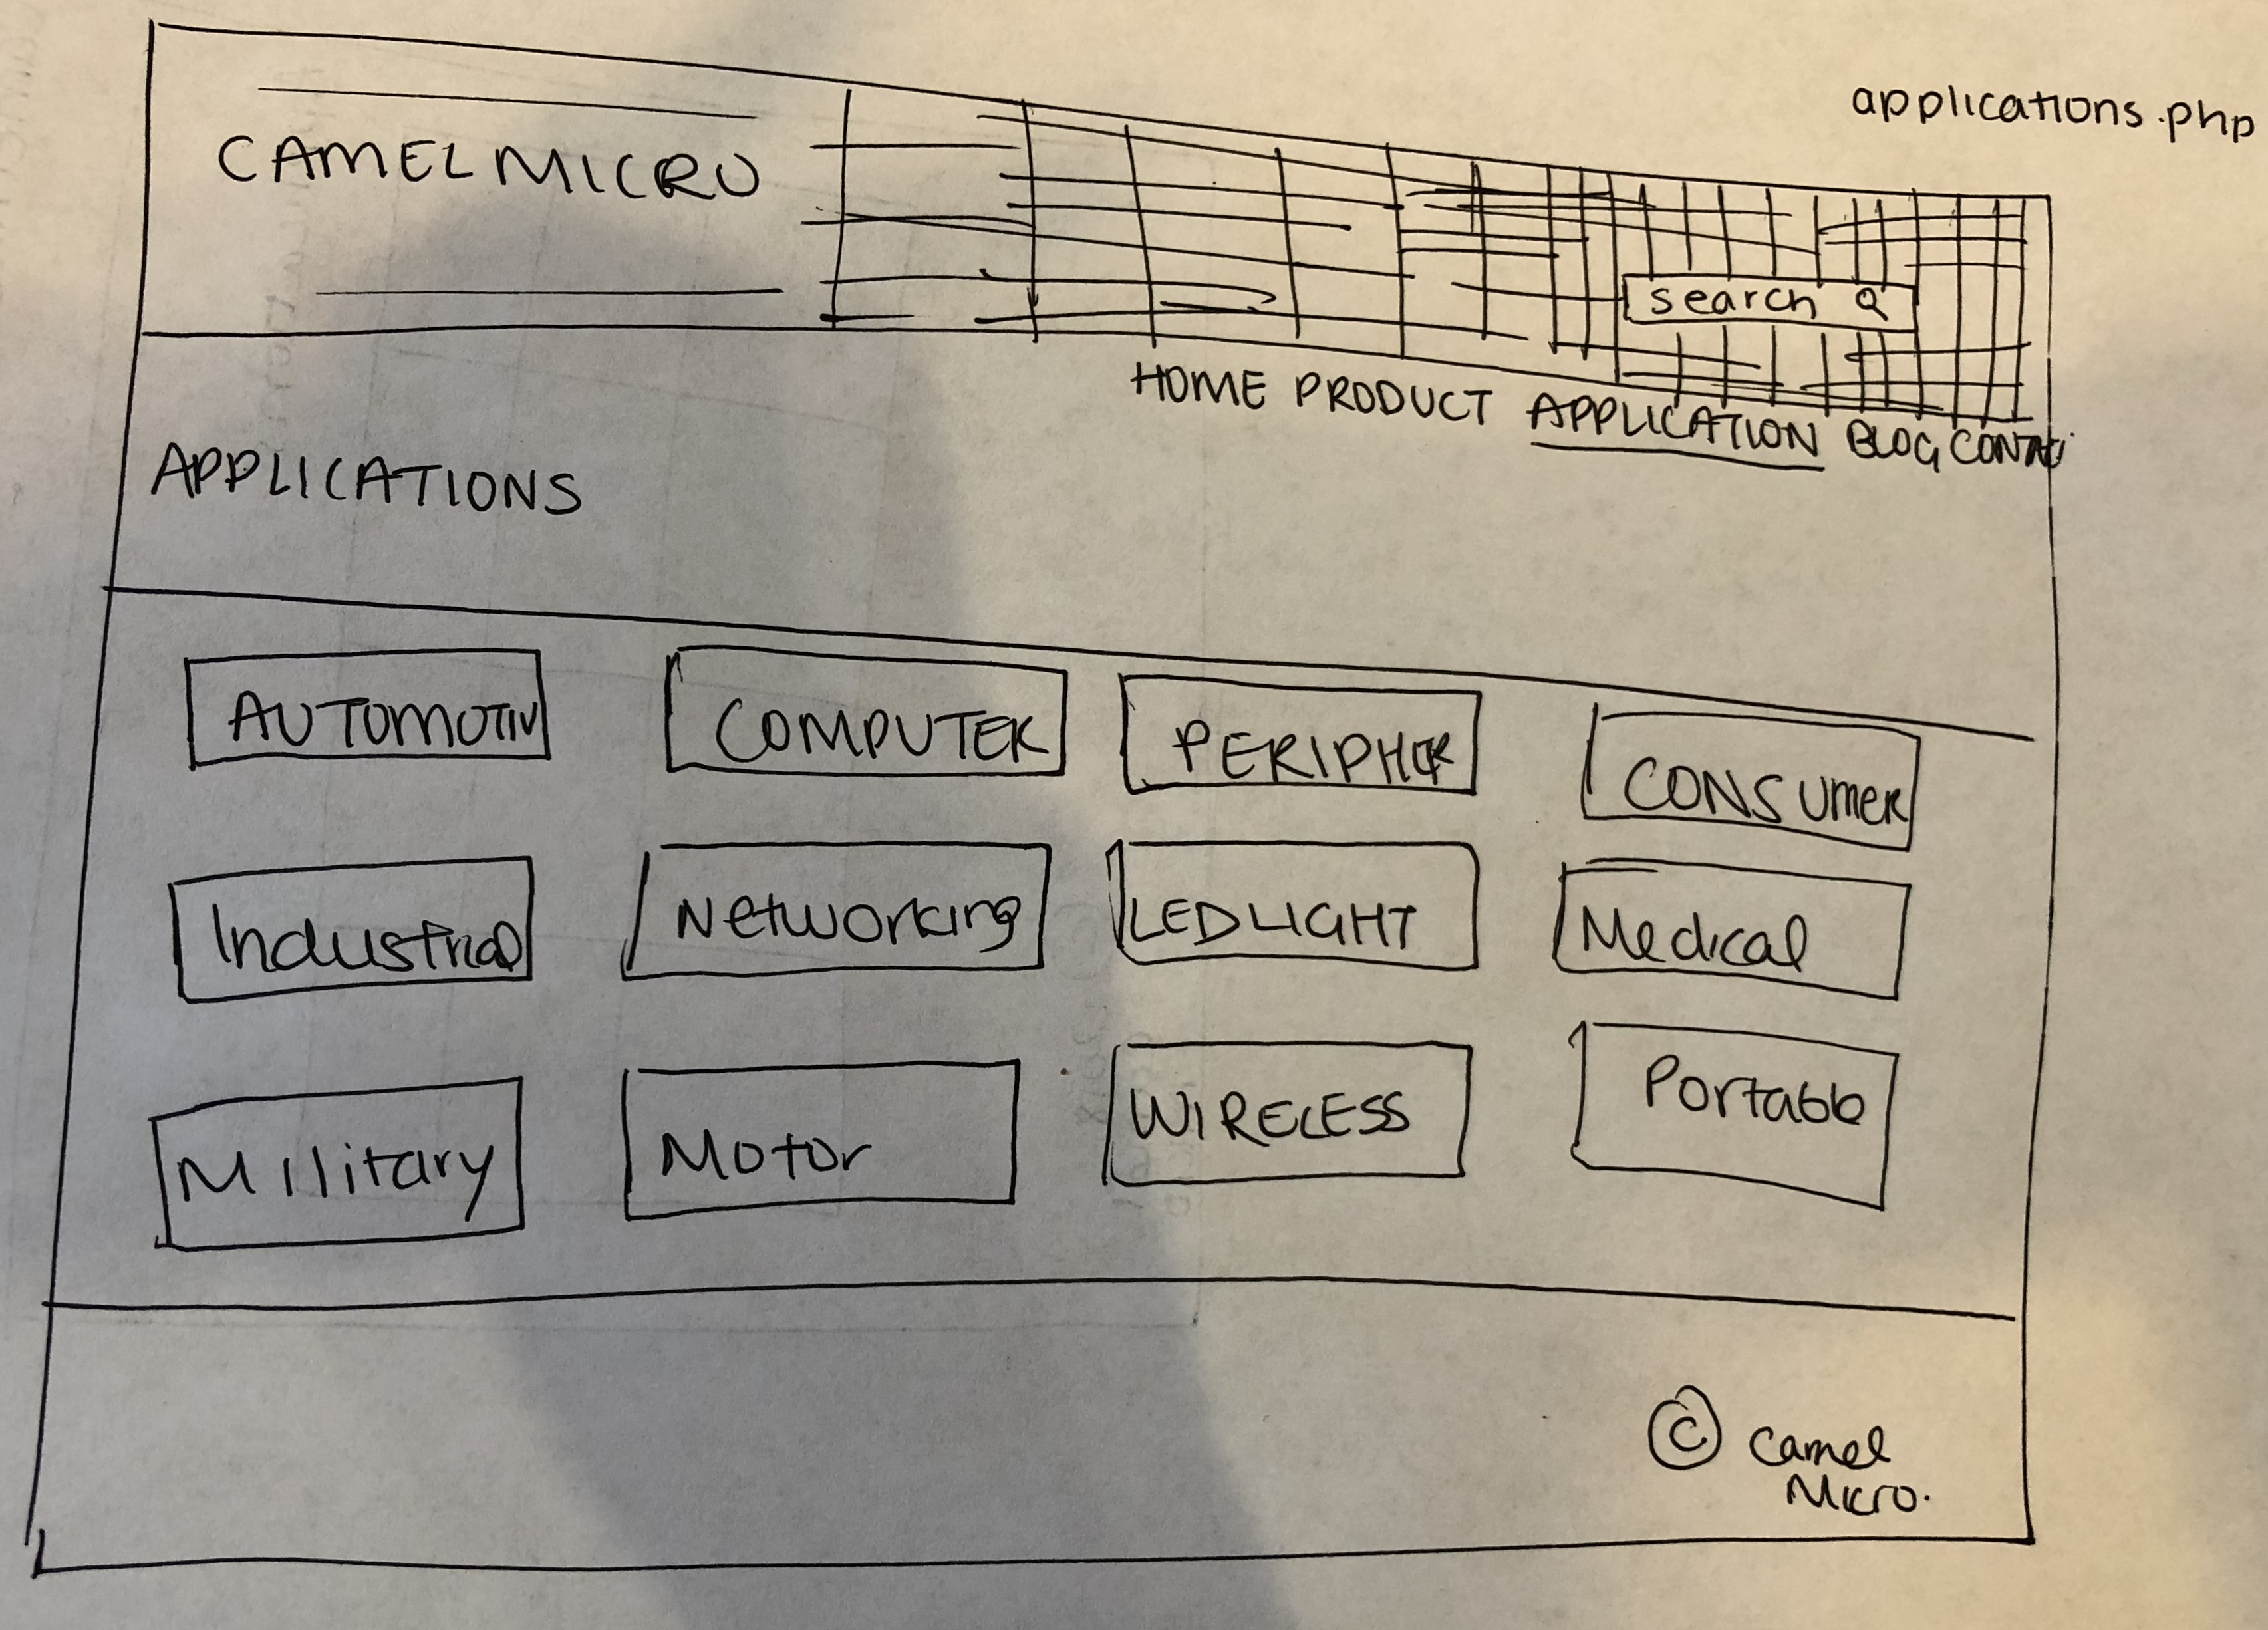 applications.php
CAMELMICRO
search
HOME PRODUCT APPLICATION BLOG CONTAC
APPLICATIONS
AUTOMOTIV COMPUTER PERIPHER CONSUMER
Industrial Networking LEDLIGHT Medical
Military Motor WIRELESS Portable
© Camel
Micro.